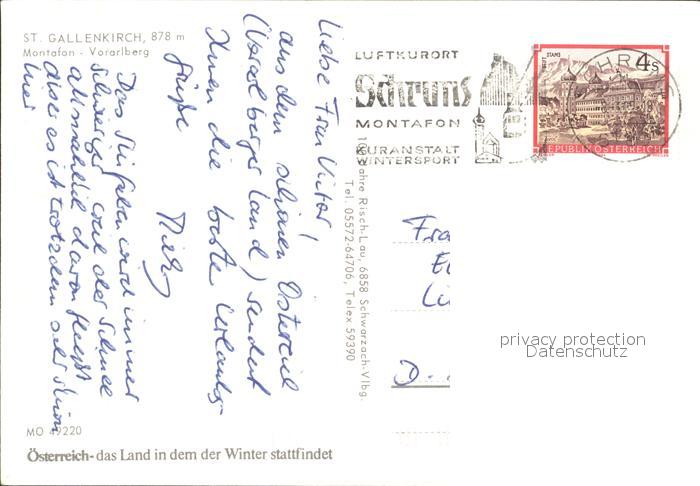 ST. GALLENKIRCH, 878 m
Montafon - Vorarlberg
Liebe Frau Victor!
aus dem schönen Österreich
(Vorarlberger Land) sendet
Ihnen die besten Urlaubs-
grüße
Das Skifahren wird immer
schwieriger weil der Schnee
allmählich davon fließt
aber es ist trotzdem sehr schön
hier
MO 49220
Österreich - das Land in dem der Winter stattfindet
Jahre Risch-Lau, 6858 Schwarzach-Vlbg.
Tel. 05572-64706, Telex 59390
LUFTKURORT
Schruns
MONTAFON
KURANSTALT
WINTERSPORT
STIFT STAMS
4 S
REPUBLIK ÖSTERREICH
Fra
privacy protection
Datenschutz